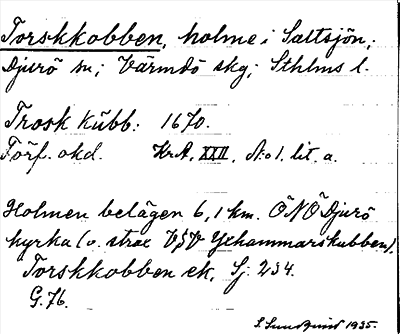 Torskkobben, holme i Saltsjön;
Djurö sn; Värmdö skg; Sthlms l.
Trosk Kübb: 1670.
Förf. okd. Kr.A, XXII, A:o 1. lit. a.
Holmen belägen 6,1 km. ÖNÖ Djurö
kyrka (o. strax VSV Yxhammarskubben).
Torskkobben ek, Sj. 234.
G.76.
S. Sundquist 1935.